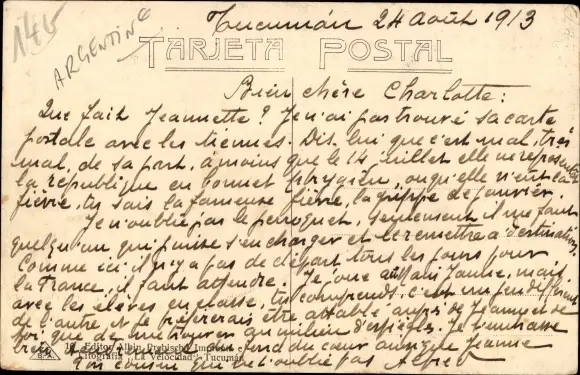 145
ARGENTINE
Tucumán 24 Août 1913
TARJETA POSTAL
Bien chère Charlotte:
Que fait Jeannette? Je n'ai pas trouvé sa carte
postale avec les tiennes. Dis-lui que c'est mal, très
mal, de sa part, à moins que le 14 juillet elle ne représentât
la république en bonnet phrygien, ou qu'elle n'eut la
fièvre, tu sais la fameuse fièvre, la grippe de janvier.
Je n'oublie pas le perroquet, seulement il me faut
quelqu'un qui puisse s'en charger et le remettre à destination.
Comme ici il n'y a pas de départ tous les jours pour
la France, il faut attendre. Je joue aussi mais
avec les élèves en classe, tu comprends, c'est un peu différent
de l'autre et je préférerais être attablé auprès de Jeanne
que de me trouver au milieu d'espiègles. Je t'embrasse
bien du fond du cœur ainsi que Jeanne
Ton cousin qui ne t'oublie pas Alfred
Editor Albin Prebisch. Imprenta e
Litografia "La Velocidad" Tucumán